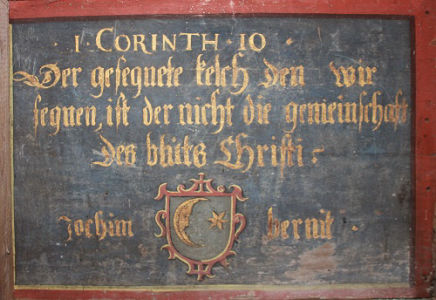 · 1 · CORINTH · 10 ·
Der gesegnete kelch den wir
segnen, ist der nicht die gemeinschaft
des bluts Christi :
Jochim bernit ·